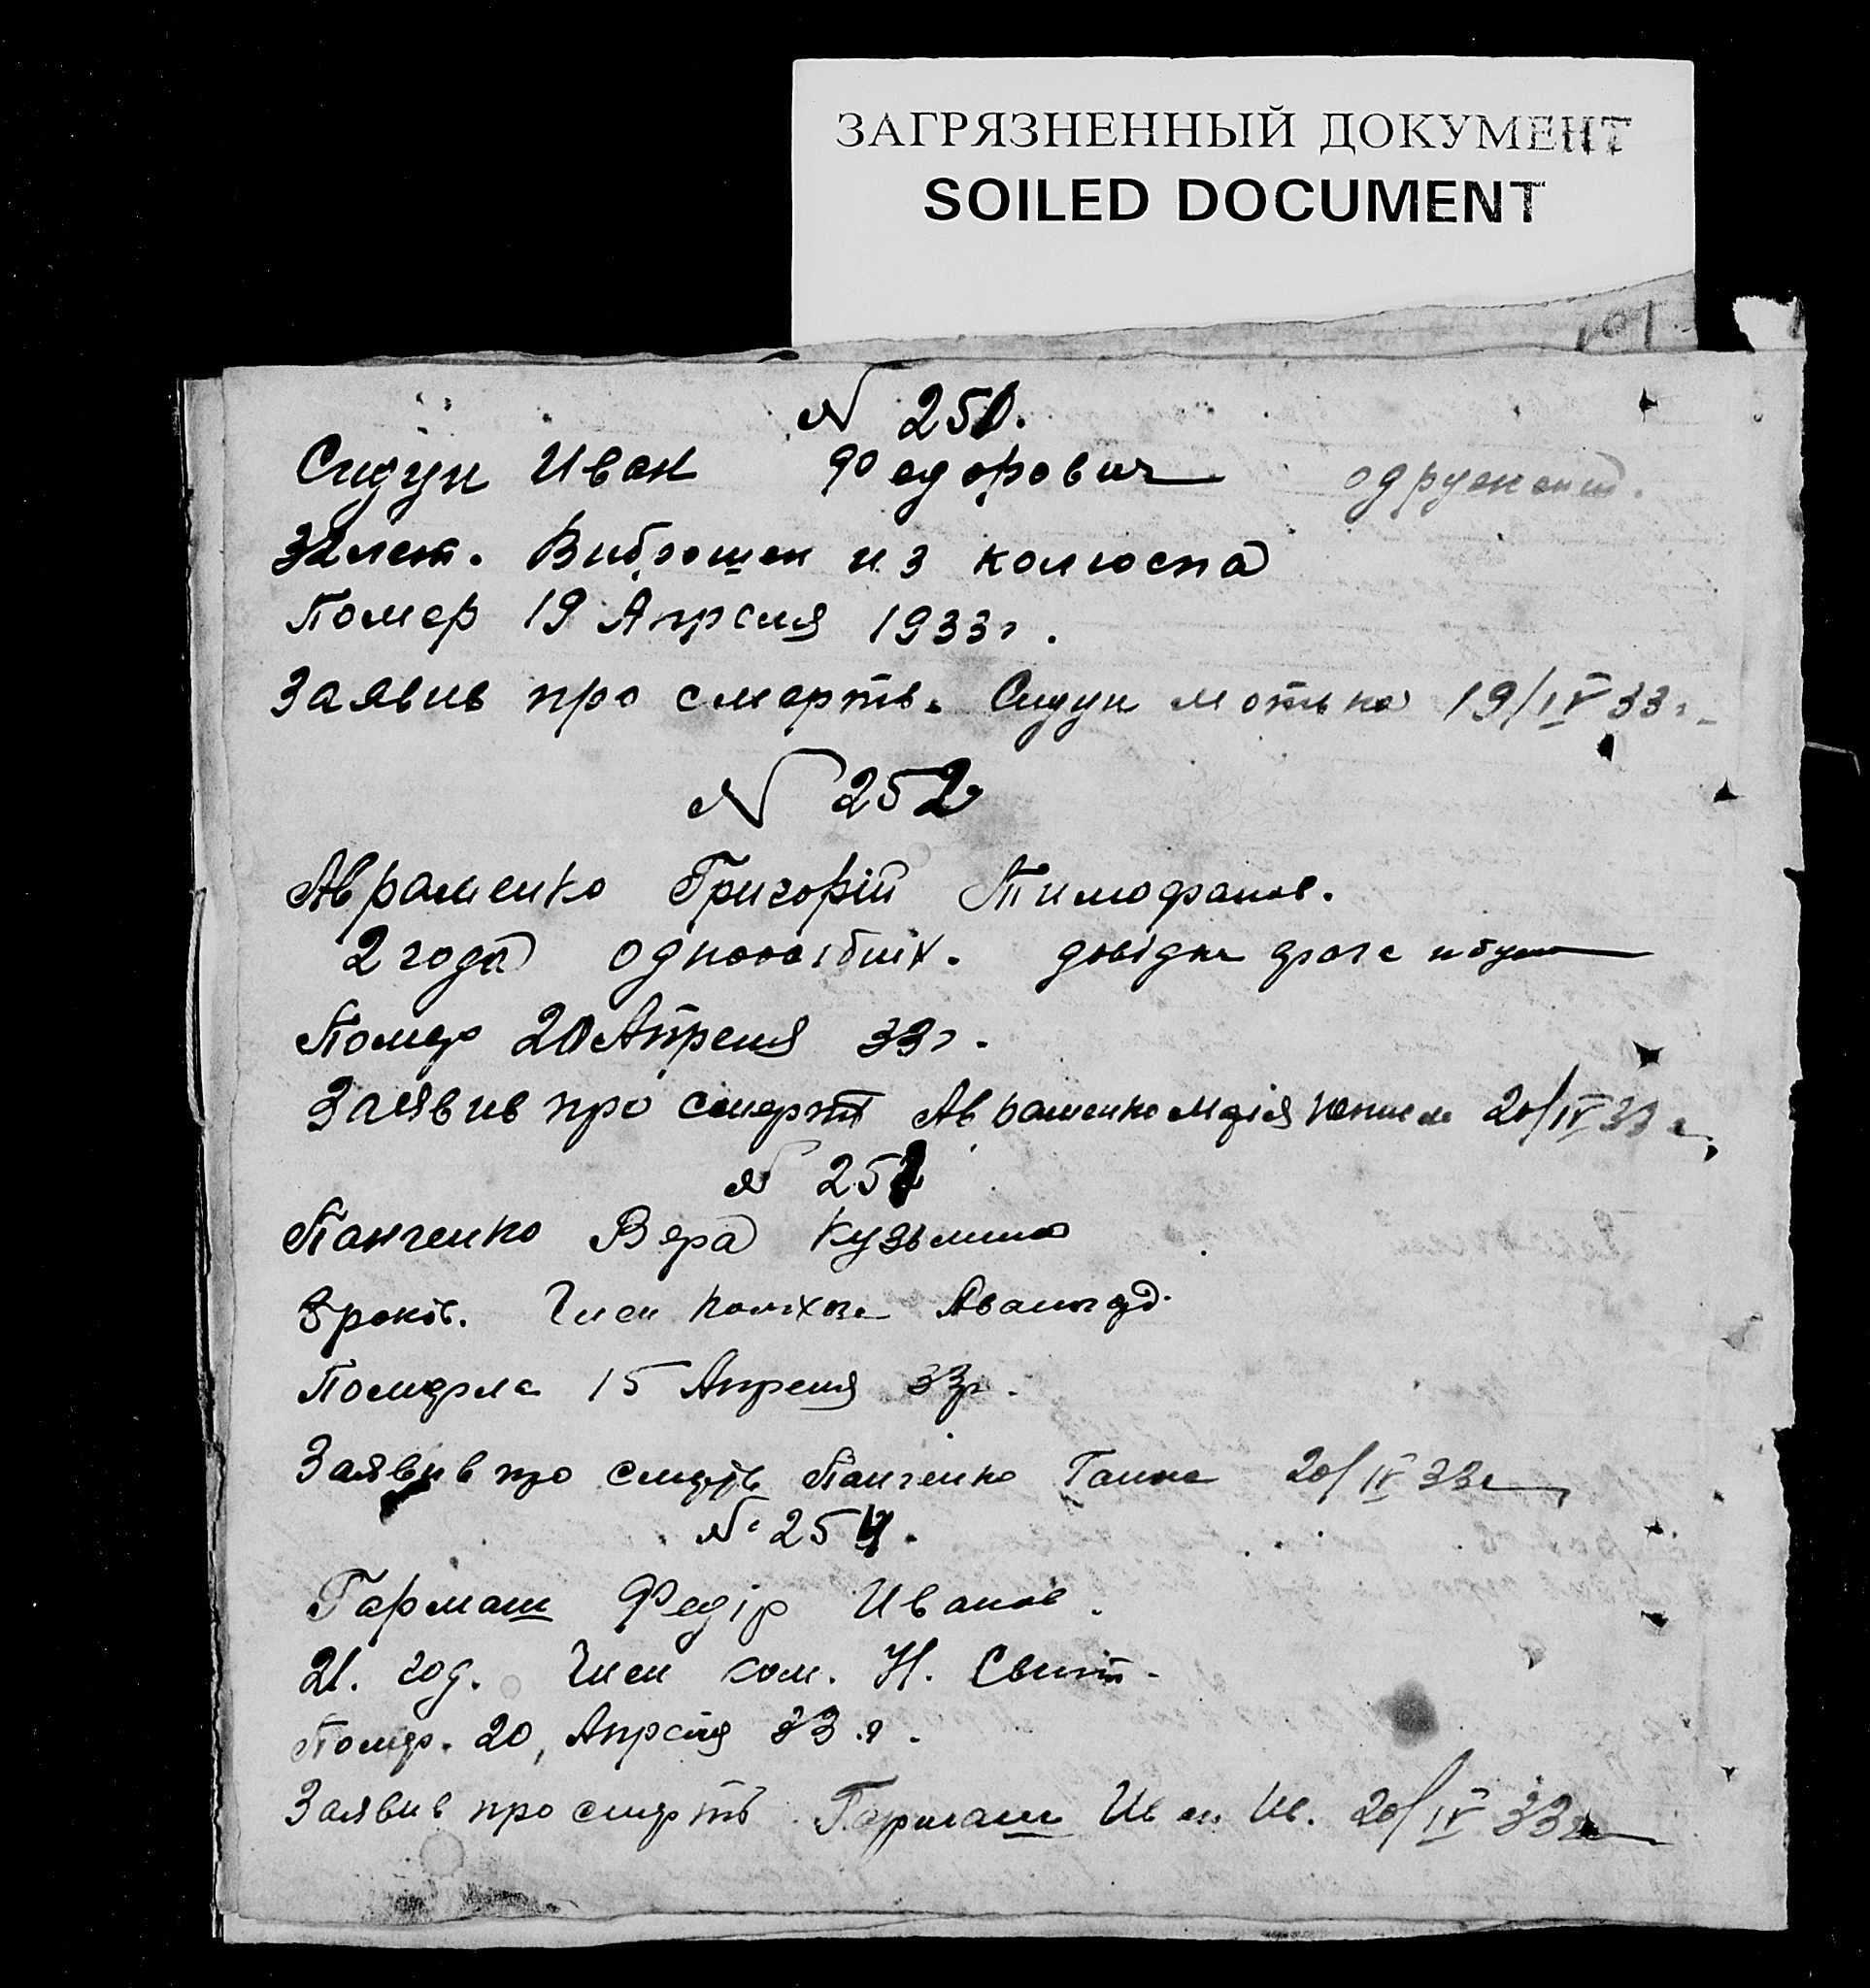 ЗАГРЯЗНЕННЫЙ ДОКУМЕНТ
SOILED DOCUMENT
N 251.
Сидун Иван Федорович одружений.
32 лет. Виброшен из колгоспа
Помер 19 Апреля 1933 г.
Заявив про смерть. Сидун Мотька 19/IV 33 г.
N 252
Авраменко Григорій Тимофанов.
2 года одноосібник.
Помер 20 Апреля 33 г.
Заявив про смерть Авраменко 20/IV 33 г.
N 253
Панченко Вера Кузьмина
3 років. Член Авангард.
Померла 15 Апреля 33 г.
Заявив про смерть Панченко Ганна 20/IV 33 г.
N 254.
Гармаш Федір Иванов.
21. год. Член ком. Н. Свит.
Помер. 20, Апреля 33 г.
Заявив про смерть Гармаш Ив. 20/IV 33 г.